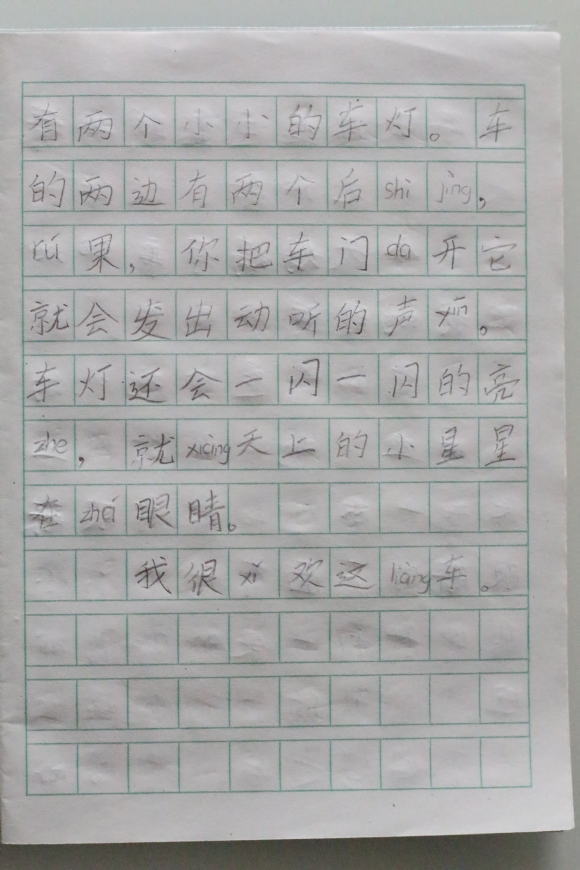 有两个小小的车灯。车
的两边有两个后shi jing,
rú果,你把车门da开它
就会发出动听的声yīn。
车灯还会一闪一闪的亮
zhe,就xiàng天上的小星星
在zhá眼睛。
我很xǐ欢这liàng车。